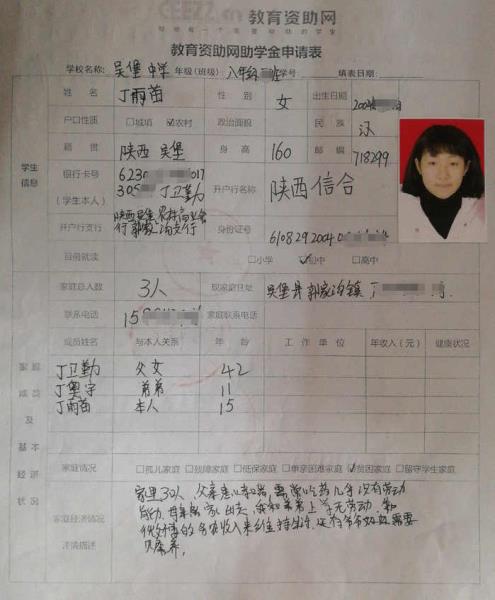 CEEZZ.cn 教育资助网
教育资助网助学金申请表
学校名称: 吴堡中学 年级(班级) 八年级 班 学号 填表日期:
姓 名 丁雨苗 性 别 女 出生日期 2004
户口性质 □城镇 ☑农村 政治面貌 民 族 汉
学生信息
籍 贯 陕西 吴堡 身 高 160 邮 编 718299
银行卡号 (学生本人) 6230 017 305 丁卫勤 开户行名称 陕西信合
开户行支行 身份证号 6108292004
目前就读 □小学 ☑初中 □高中
家庭总人数 3人 现家庭住址 吴堡县郭家沟镇丁
联系电话 15 家庭联系电话
成员姓名 与本人关系 年 龄 工 作 单 位 年收入(元) 健康状况
家庭成员及基本经济状况
丁卫勤 父女 42
弟弟 11
丁雨苗 本人 15
家庭情况 □孤儿家庭 □残障家庭 □低保家庭 □单亲困难家庭 ☑贫困家庭 □留守学生家庭
家庭经济情况详情描述
家里3口人,父亲患 需常吃药几年没有劳动
能力,母亲离家出走,我和弟弟上学无劳动,
收入来维持生活,还有爷爷奶奶需要